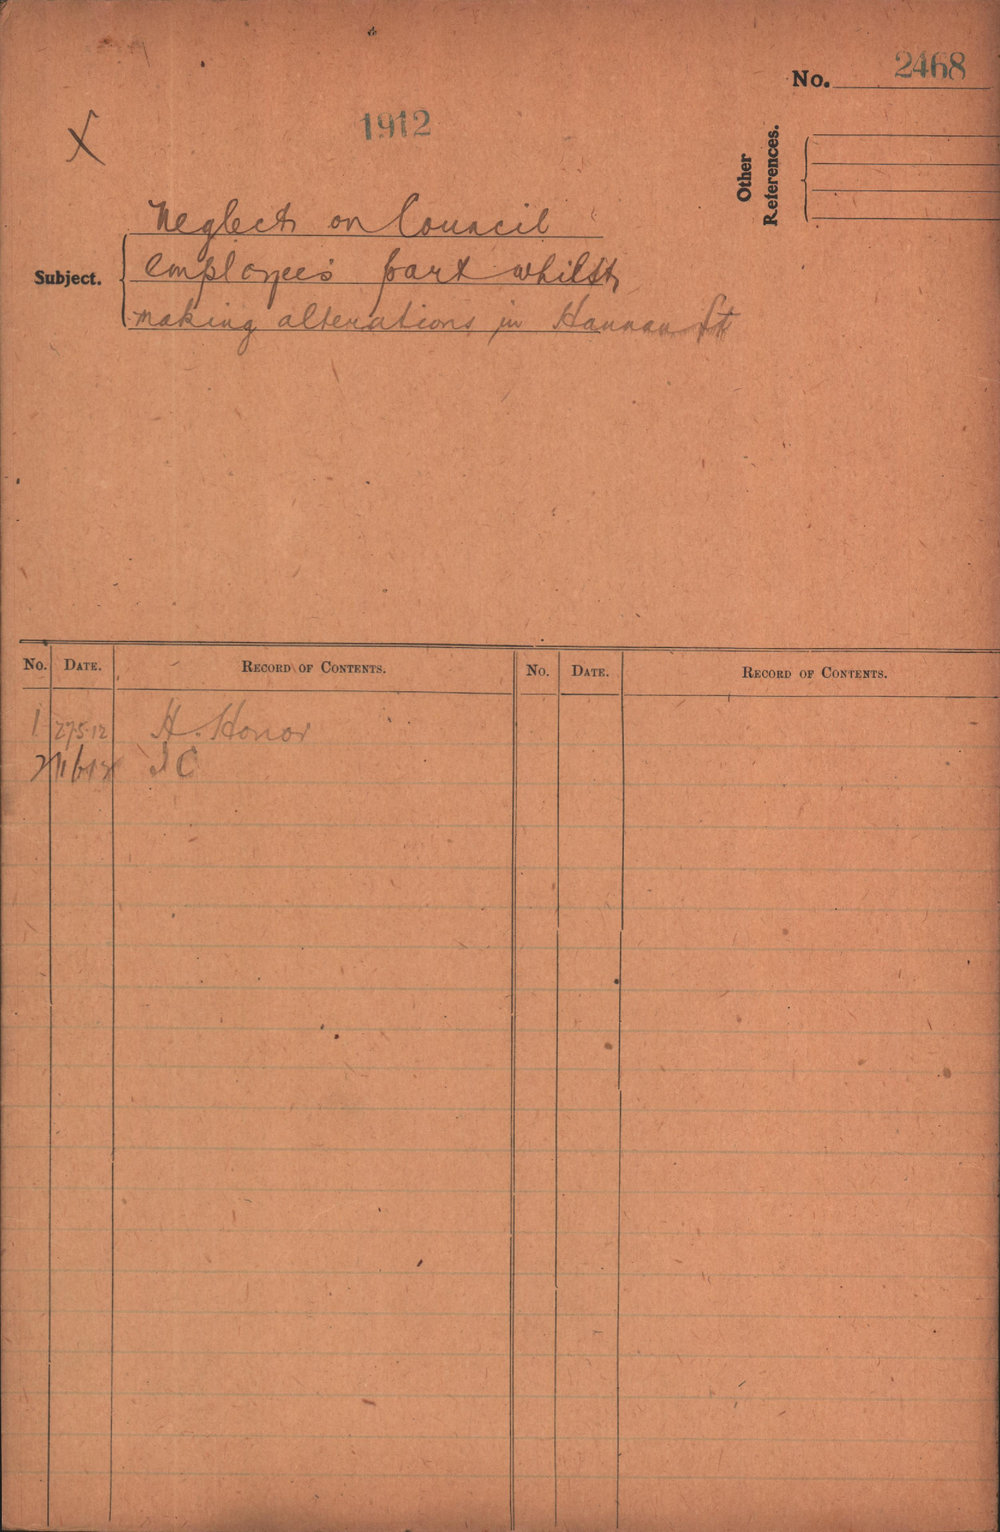 No. 2468
1912
X
Other
References.
Neglect on Council
Subject.
employees part whilst
making alterations in Hannan St
No. DATE. RECORD OF CONTENTS. No. DATE. RECORD OF CONTENTS.
1 27.5.12 H. Honor
2